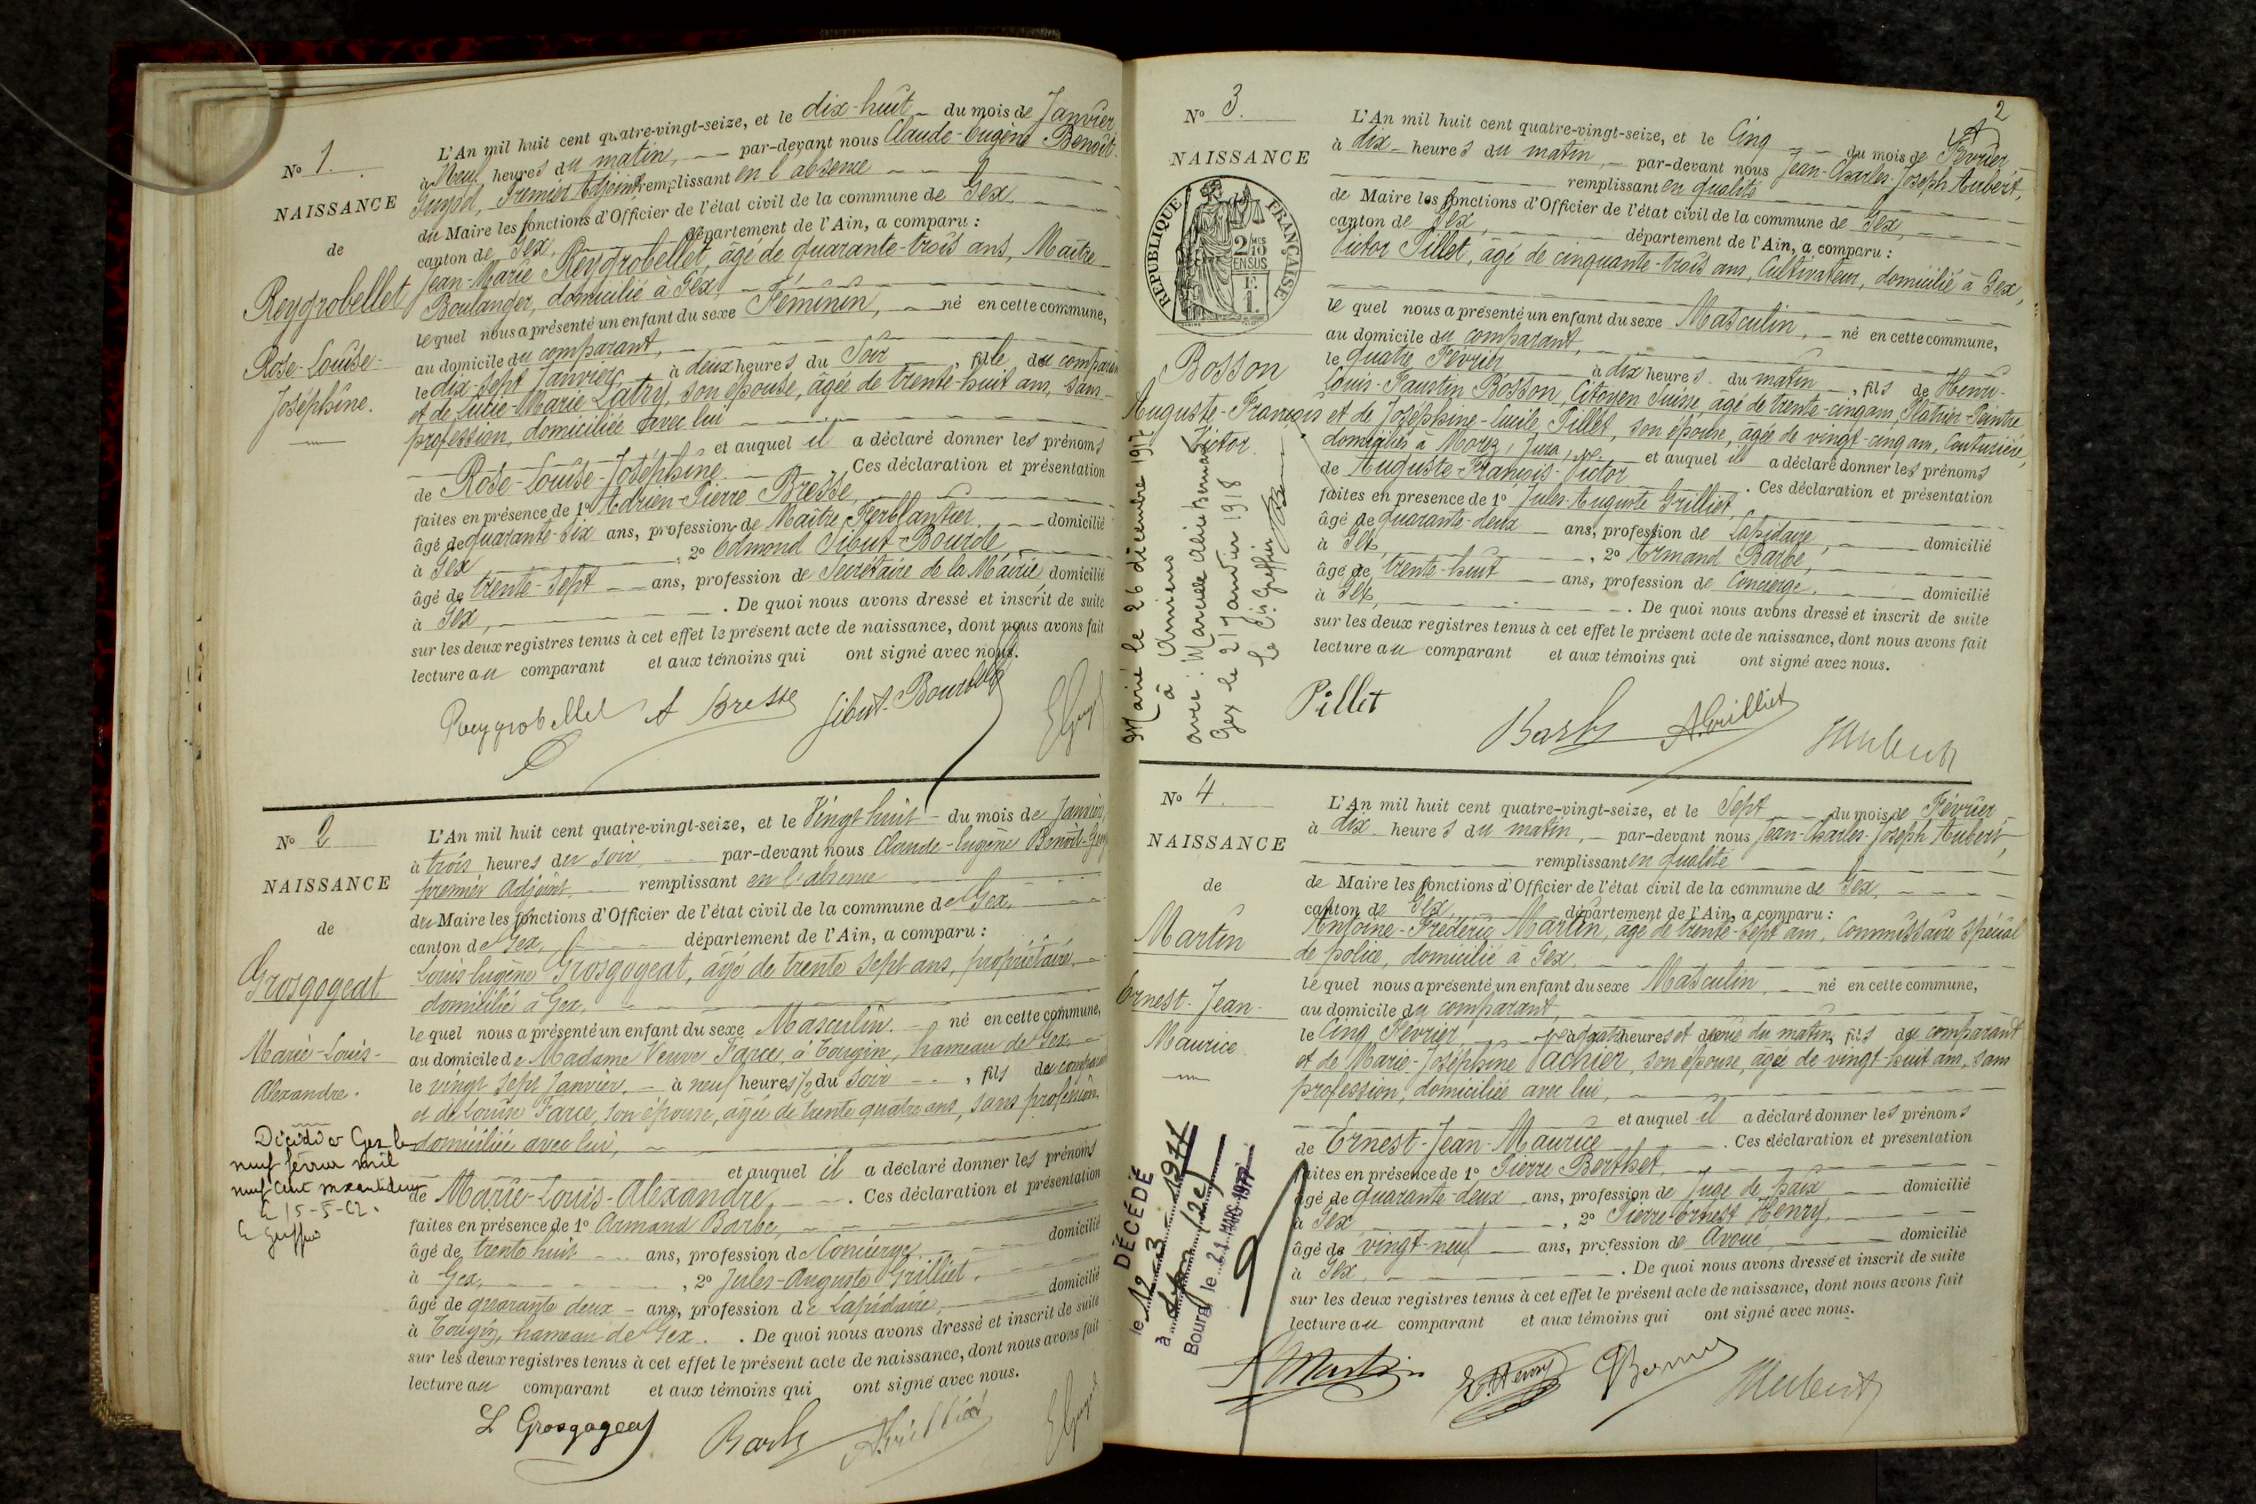 No 1.
NAISSANCE
de
Reygrobellet
Rose-Louise-
Joséphine.
L'An mil huit cent quatre-vingt-seize, et le dix-huit du mois de Janvier
à Neuf heures du matin, par-devant nous Claude-Eugène Benoît-
Guyod, Premier Adjoint remplissant en l'absence
du Maire les fonctions d'Officier de l'état civil de la commune de Gex,
canton de Gex, département de l'Ain, a comparu :
Jean-Marie Reygrobellet, âgé de quarante-trois ans, Maître
Boulanger, domicilié à Gex,
lequel nous a présenté un enfant du sexe Féminin, né en cette commune,
au domicile du comparant,
le dix-sept Janvier, à deux heures du Soir, fille du comparant
et de Lucie-Marie Latry, son épouse, âgée de trente-huit ans, sans
profession, domiciliée avec lui
et auquel il a déclaré donner les prénoms
de Rose-Louise-Joséphine. Ces déclaration et présentation
faites en présence de 1o Adrien-Pierre Bresse,
âgé de quarante-six ans, profession de Maître Ferblantier domicilié
à Gex, 2o Edmond Sibut-Bourde
âgé de trente-sept ans, profession de Secrétaire de la Mairie domicilié
à Gex, . De quoi nous avons dressé et inscrit de suite
sur les deux registres tenus à cet effet le présent acte de naissance, dont nous avons fait
lecture au comparant et aux témoins qui ont signé avec nous.
Reygrobellet A Bresse Sibut-Bourde
No 2
NAISSANCE
de
Grosgogeat
Marie-Louis-
Alexandre.
Décédé à Gex le
neuf février mil
neuf cent soixante deux
Le 15-5-62.
Le Greffier
L'An mil huit cent quatre-vingt-seize, et le Vingt huit du mois de Janvier,
à trois heures du soir, par-devant nous Claude-Eugène Benoît-Guyod
premier adjoint remplissant en l'absence
du Maire les fonctions d'Officier de l'état civil de la commune de Gex,
canton de Gex, département de l'Ain, a comparu :
Louis Eugène Grosgogeat, âgé de trente sept ans, propriétaire,
domicilié à Gex,
lequel nous a présenté un enfant du sexe Masculin. né en cette commune,
au domicile de Madame Veuve Farce, à Tougin, hameau de Gex,
le vingt sept Janvier, à neuf heures 1/2 du soir, fils du comparant
et de Louise Farce, son épouse, âgée de trente quatre ans, sans profession,
domiciliée avec lui,
et auquel il a déclaré donner les prénoms
de Marie-Louis-Alexandre. Ces déclaration et présentation
faites en présence de 1o Armand Barbe,
âgé de trente huit ans, profession de Concierge domicilié
à Gex, 2o Jules-Auguste Grilliet,
âgé de quarante deux ans, profession de Lapidaire, domicilié
à Tougin, hameau de Gex. . De quoi nous avons dressé et inscrit de suite
sur les deux registres tenus à cet effet le présent acte de naissance, dont nous avons fait
lecture au comparant et aux témoins qui ont signé avec nous.
L Grosgogeat Barbe A. Grilliet
2
No 3.
NAISSANCE
RÉPUBLIQUE FRANÇAISE
2/10
EN SUS
1 F.
Bosson
Auguste-François
Victor.
Marié le 26 décembre 1917
à Amiens
Gex le 21 janvier 1918
Le Greffier
L'An mil huit cent quatre-vingt-seize, et le Cinq du mois de Février
à dix heures du matin, par-devant nous Jean-Charles-Joseph Hubert,
remplissant en qualité
de Maire les fonctions d'Officier de l'état civil de la commune de Gex,
canton de Gex, département de l'Ain, a comparu :
Victor Pillet, âgé de cinquante-trois ans, Cultivateur, domicilié à Gex,
lequel nous a présenté un enfant du sexe Masculin, né en cette commune,
au domicile du comparant,
le quatre Février à dix heures du matin, fils de Henri-
Louis-Faustin Bosson, Citoyen Suisse, âgé de trente-cinq ans, Plâtrier-Peintre
et de Joséphine-Lucile Pillet, son épouse, âgée de vingt-cinq ans, Couturière,
domiciliés à Morez, Jura, et auquel il a déclaré donner les prénoms
de Auguste-François-Victor . Ces déclaration et présentation
faites en présence de 1o Jules-Auguste Grilliet,
âgé de quarante-deux ans, profession de Lapidaire, domicilié
à Gex, 2o Armand Barbe,
âgé de trente-huit ans, profession de Concierge, domicilié
à Gex, . De quoi nous avons dressé et inscrit de suite
sur les deux registres tenus à cet effet le présent acte de naissance, dont nous avons fait
lecture au comparant et aux témoins qui ont signé avec nous.
Pillet Barbe A. Grilliet Hubert
No 4.
NAISSANCE
de
Martin
Ernest-Jean-
Maurice
DÉCÉDÉ
le 12-3-1977
à Lyon (2e)
Bourg le 21 MARS 1977
L'An mil huit cent quatre-vingt-seize, et le Sept du mois de Février
à dix heures du matin, par-devant nous Jean-Charles-Joseph Hubert,
remplissant en qualité
de Maire les fonctions d'Officier de l'état civil de la commune de Gex,
canton de Gex, département de l'Ain, a comparu :
Antoine-Frédéric Martin, âgé de trente-sept ans, Commissaire Spécial
de police, domicilié à Gex,
lequel nous a présenté un enfant du sexe Masculin, né en cette commune,
au domicile du comparant,
le Cinq Février à quatre heures et demie du matin, fils du comparant
et de Marie-Joséphine Vachier, son épouse, âgée de vingt-huit ans, sans
profession, domiciliée avec lui,
et auquel il a déclaré donner les prénoms
de Ernest-Jean-Maurice . Ces déclaration et présentation
faites en présence de 1o Pierre Berthet,
âgé de quarante-deux ans, profession de Juge de paix domicilié
à Gex, 2o Pierre-Ernest Henry,
âgé de vingt-neuf ans, profession de Avoué, domicilié
à Gex, . De quoi nous avons dressé et inscrit de suite
sur les deux registres tenus à cet effet le présent acte de naissance, dont nous avons fait
lecture au comparant et aux témoins qui ont signé avec nous.
Martin E. Henry Hubert